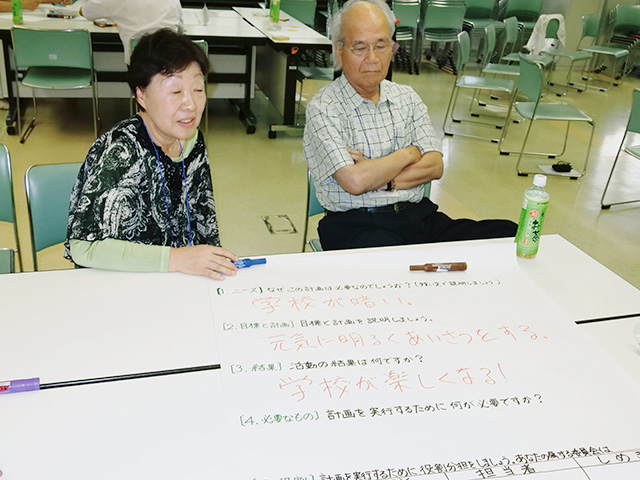 [1. ニーズ] なぜ この計画は必要なのでしょうか？(短い文で説明しましょう)
学校が暗い。
[2. 目標と計画] 目標と計画を説明しましょう。
元気に明るくあいさつをする。
[3. 結果] 活動の結果は何ですか？
学校が楽しくなる!
[4. 必要なもの] 計画を実行するために何が必要ですか？
計画を実行するために役割分担をしましょう。あなたの属する委員会は
担当者
しめ